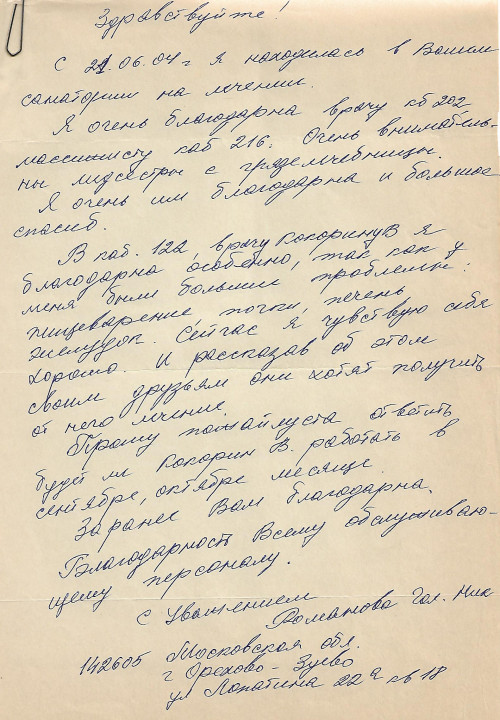 Здравствуйте!
С 21.06.04 г я находилась в Вашем
санатории на лечении.
Я очень благодарна врачу кб 202
массажисту каб 216. Очень вниматель-
ны медсестры с грязелечебницы.
Я очень им благодарна и большое
спасиб.
В каб. 122, врачу Кокорину В я
благодарна особенно, так как у
меня были большие проблемы:
пищеварение почки, печень
желудок. Сейчас я чувствую себя
хорошо. И рассказав об этом
своим друзьям они хотят получить
от него лечение.
Прошу пожайлуста ответить
будет ли Кокорин В. работать в
сентябре, октябре месяце.
Заранее Вам благодарна.
Благодарность Всему обслуживаю-
щему персоналу.
С Уважением
Романова Гал. Ник
142605 Московская обл.
г Орехово-Зуево
ул Лопатина 22 кв 18